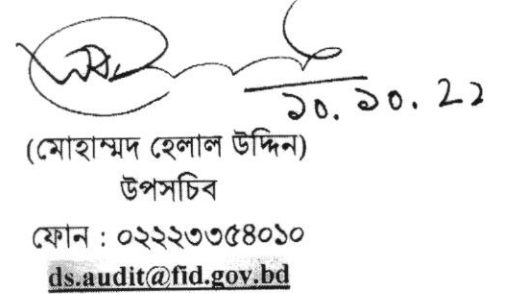 ১০.১০.২২
(মোহাম্মদ হেলাল উদ্দিন)
উপসচিব
ফোন : ০২২২৩৩৫৪০১০
ds.audit@fid.gov.bd